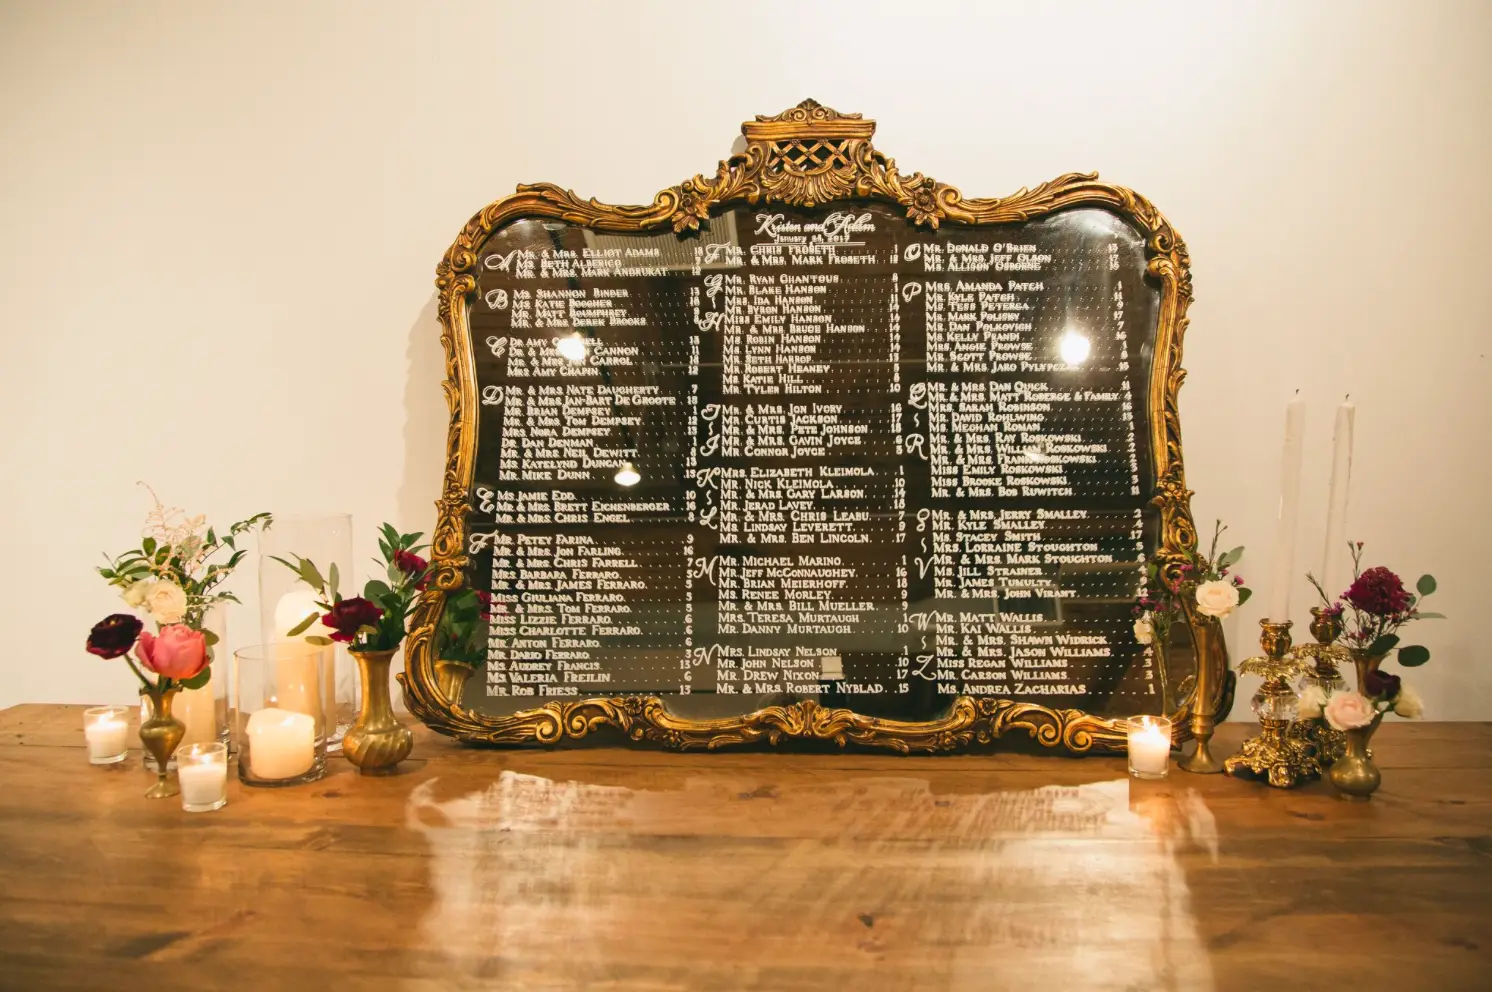 Kristen and Adam
January 28, 2017
A
Mr. & Mrs. Elliot Adams
Ms. Beth Alberico
Mr. & Mrs. Mark Andrukat
B
Ms. Shannon Binder
Ms. Katie
Mr. Matt Boumphrey
Mr. & Mrs. Derek Brooks
C
Dr. Amy
Dr. & Cannon 11
Mr. & Mrs. Carrol
Mrs. Amy Chapin 12
D
Mr. & Mrs. Nate Daugherty 7
Mr. & Mrs. Jan-Bart De Groote 15
Mr. Brian Dempsey
Mr. & Mrs. Tom Dempsey 12
Mrs. Nora Dempsey
Dr. Dan Denman
Mr. & Mrs. Neil Dewitt
Ms. Katelynd Duncan
Mr. Mike Dunn 13
E
Ms. Jamie Edd 10
Mr. & Mrs. Brett Eichenberger 16
Mr. & Mrs. Chris Engel 8
F
Mr. Petey Farina 9
Mr. & Mrs. Jon Farling 16
Mr. & Mrs. Chris Farrell 7
Mrs. Barbara Ferraro 3
Mr. & Mrs. James Ferraro 3
Miss Giuliana Ferraro 3
Mr. & Mrs. Tom Ferraro 5
Miss Lizzie Ferraro 6
Miss Charlotte Ferraro 6
Mr. Anton Ferraro 6
Mr. Dario Ferraro 3
Ms. Audrey Francis 13
Ms. Valeria Freilin 6
Mr. Rob Friess 13
F
Mr. Chris Froseth 1
Mr. & Mrs. Mark Froseth
G
~
H
Mr. Ryan Ghantous 8
Mr. Blake Hanson
Mrs. Ida Hanson 11
Mr. Byron Hanson 14
Miss Emily Hanson 14
Mr. & Mrs. Bruce Hanson 14
Ms. Robin Hanson 14
Ms. Lynn Hanson 14
Mr. Seth Harrop
Mr. Robert Heaney 5
Ms. Katie Hill 8
Mr. Tyler Hilton 10
I
~
J
Mr. & Mrs. Jon Ivory 16
Mr. Curtis Jackson 17
Mr. & Mrs. Pete Johnson 18
Mr. & Mrs. Gavin Joyce 8
Mr. Connor Joyce 5
K
~
L
Mrs. Elizabeth Kleimola 1
Mr. Nick Kleimola 10
Mr. & Mrs. Gary Larson 14
Mr. Jerad Lavey 18
Mr. & Mrs. Chris Leabu 7
Ms. Lindsay Leverett 9
Mr. & Mrs. Ben Lincoln 17
M
Mr. Michael Marino 1
Mr. Jeff McConnaughey 16
Mr. Brian Meierhoff 18
Ms. Renee Morley 9
Mr. & Mrs. Bill Mueller 9
Mrs. Teresa Murtaugh
Mr. Danny Murtaugh 10
N
Mrs. Lindsay Nelson 1
Mr. John Nelson 10
Mr. Drew Nixon 17
Mr. & Mrs. Robert Nyblad 15
O
Mr. Donald O'Brien
Mr. & Mrs. Jeff Olson 17
Ms. Allison Osborne
P
Mrs. Amanda Patch 1
Mr. Kyle Patch
Ms. Tess
Mr. Mark Polisky 17
Mr. Dan Polkovich 7
Ms. Kelly Prandi
Mrs. Angie Prowse
Mr. Scott Prowse
Mr. & Mrs. Jaro
Q
~
R
Mr. & Mrs. Dan Quick 11
Mr. & Mrs. Matt Roberge & Family 4
Mrs. Sarah Robinson
Mr. David Rohlwing
Ms. Meghan Roman
Mr. & Mrs. Ray Roskowski 2
Mr. & Mrs. William Roskowski 2
Mr. & Mrs. Roskowski
Miss Emily Roskowski
Miss Brooke Roskowski
Mr. & Mrs. Bob Ruwitch 11
S
~
V
Mr. & Mrs. Jerry Smalley 2
Mr. Kyle Smalley 4
Ms. Stacey Smith 17
Mrs. Lorraine Stoughton
Mr. & Mrs. Mark Stoughton
Ms. Jill Strainer
Mr. James Tumulty
Mr. & Mrs. John Virant 12
W
~
Z
Mr. Matt Wallis
Mr. Kai Wallis
Mr. & Mrs. Shawn Widrick
Mr. & Mrs. Jason Williams 4
Miss Regan Williams 3
Mr. Carson Williams 3
Ms. Andrea Zacharias 1